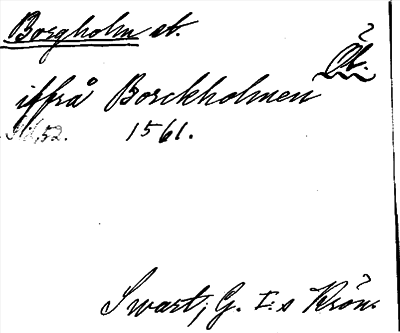 Borgholm st.
Öl.
iffrå Borckholmen
52. 1561.
Swart, G. I:s Krön.